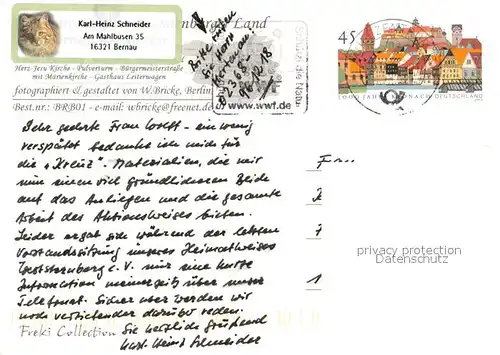 Karl-Heinz Schneider
Am Mahlbusen 35
16321 Bernau
Land
Herz-Jesu Kirche - Pulverturm - Bürgermeisterstraße
mit Marienkirche - Gasthaus Leiterwagen
fotographiert & gestaltet von W.Bricke, Berlin
Best.nr.: BRB01 - e-mail: wbricke@freenet.de
Bitte
www.wwf.de
45
1000 JAHRE KRONACH DEUTSCHLAND
Sehr geehrte Frau Wolff - ein wenig
verspätet bedanke ich mich für
die "Kreuz"-Materialien, die mir
nun einen viel gründlicheren
auf das Anliegen und die gesamte
Arbeit des Aktionskreises bieten.
Leider ergab sich während der letzten
Vorstandssitzung unseres Heimatkreises
Oststernberg e.V. nur eine kurze
Information meinerseits über unser
Telefonat. Sicher aber werden wir
noch verstehender darüber reden.
Sie herzlich grüßend
Karl-Heinz Schneider
Freki Collection
privacy protection
Datenschutz